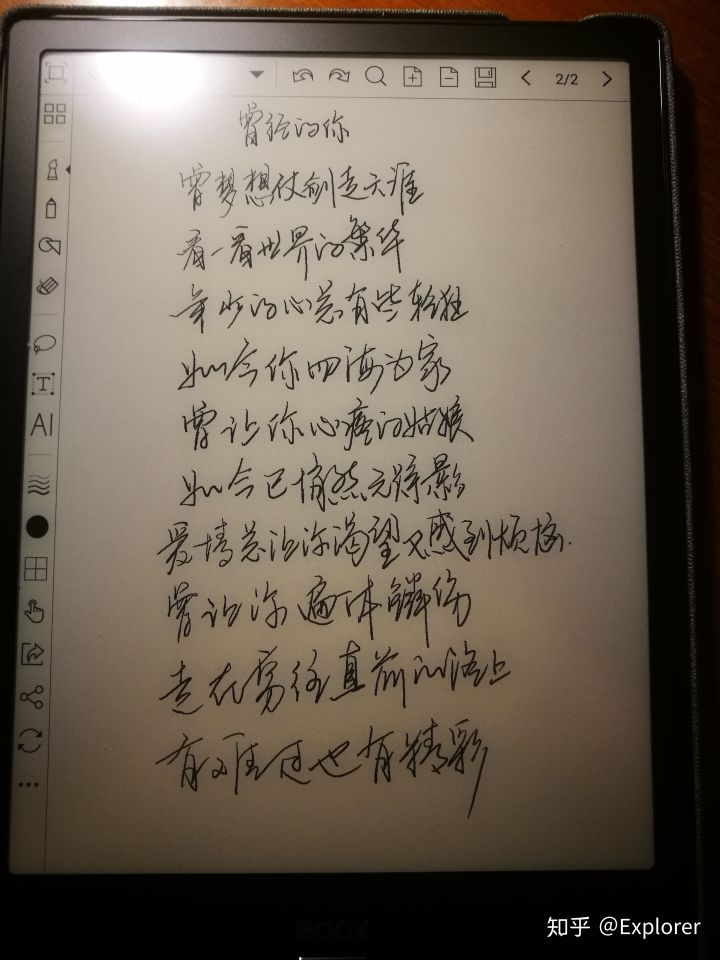 2/2
曾经的你
曾梦想仗剑走天涯
看一看世界的繁华
年少的心总有些轻狂
如今你四海为家
曾让你心疼的姑娘
如今已悄然无踪影
爱情总让你渴望又感到烦恼.
曾让你遍体鳞伤
走在勇往直前的路上
有难过也有精彩
AI
BOOX
知乎 @Explorer